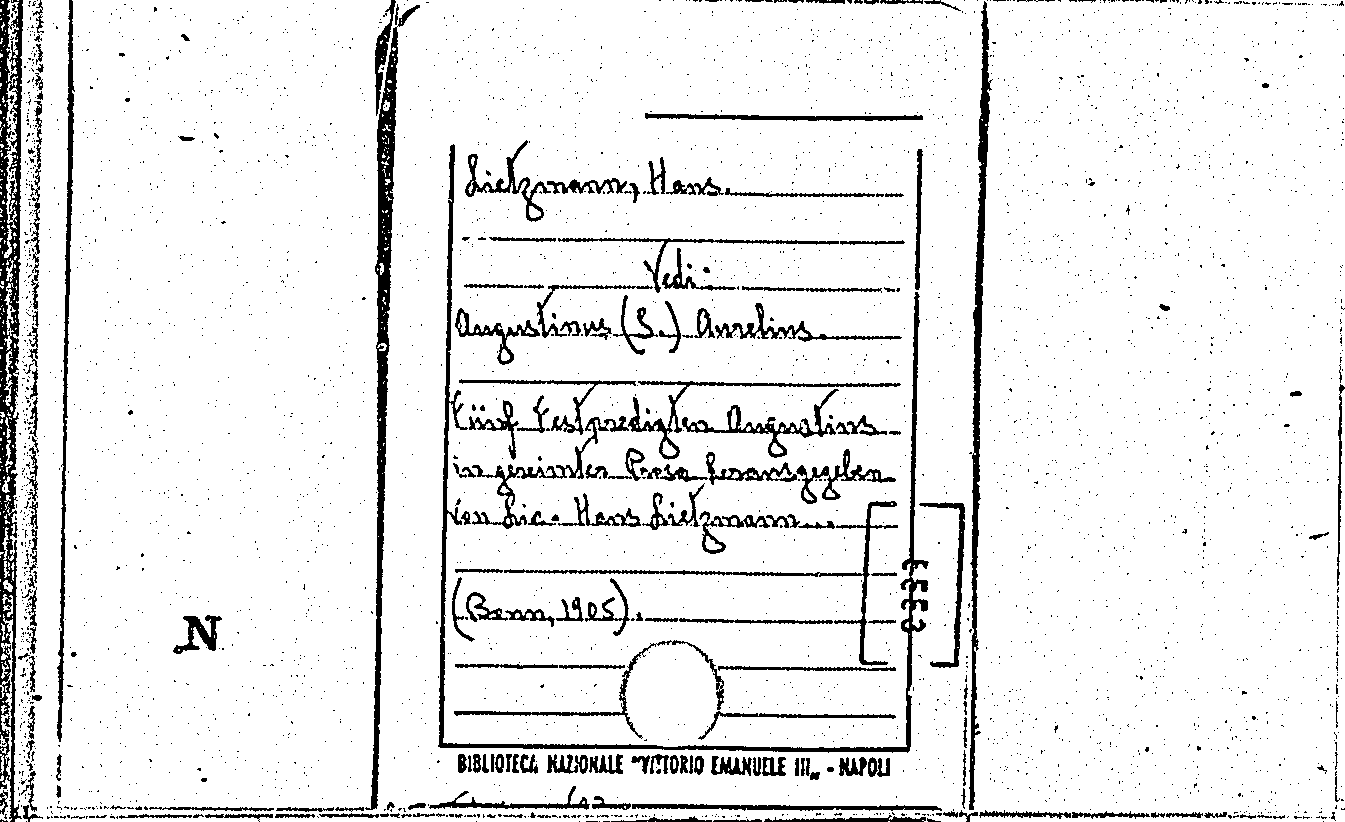 Lietzmann, Hans.
Vedi:
Augustinus (S.) Aurelius.
Fünf Festpredigten Augustins
in gereimter Prosa herausgegeben
von Lic. Hans Lietzmann...
(Bonn, 1905).
N
BIBLIOTECA NAZIONALE "VITTORIO EMANUELE III„ - NAPOLI